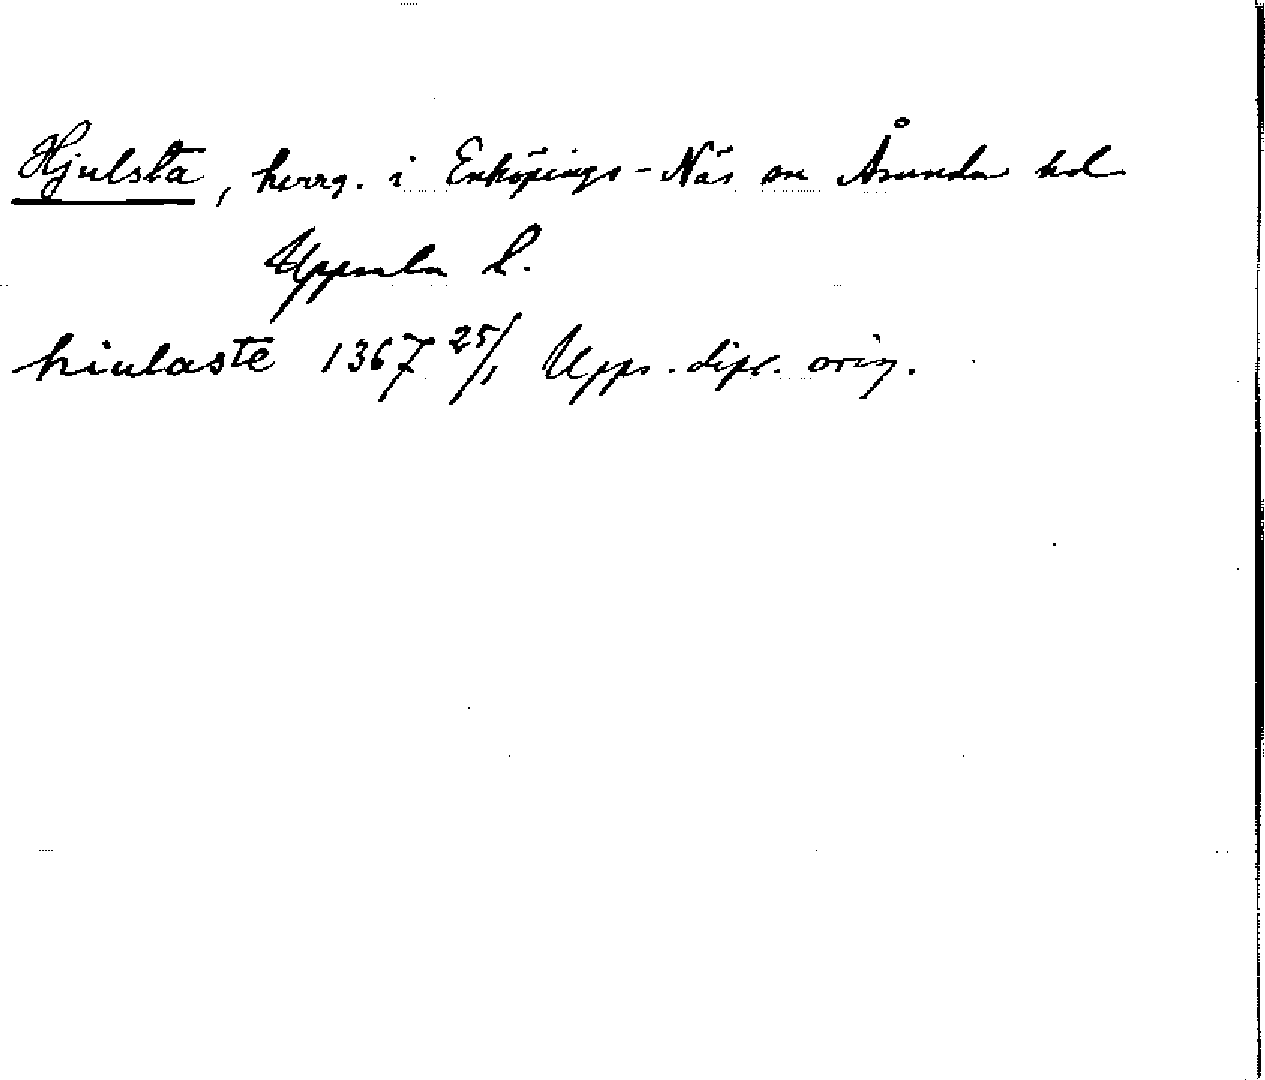 Hjulsta, herrg. i Enköpings-Näs sn Åsunda hd
Uppsala l.
hiulaste 1367 25/1 Upps. dipl. orig.